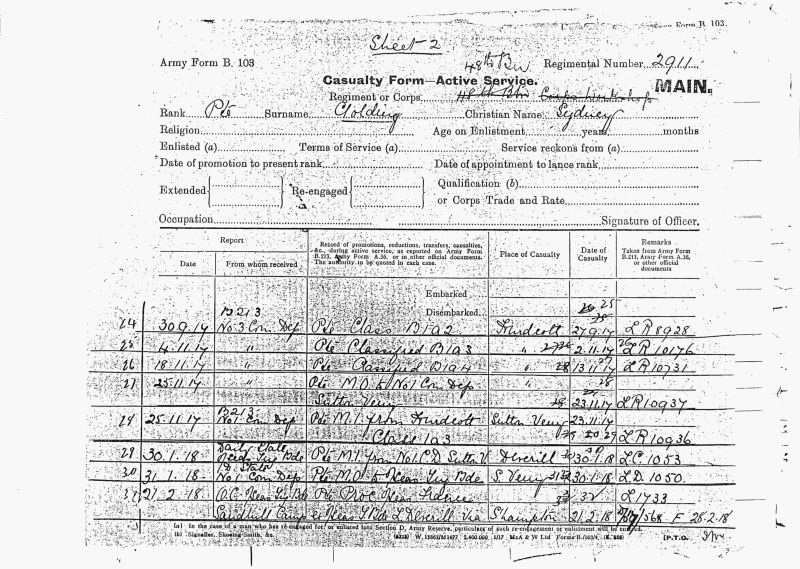 Form B. 103.
Sheet 2
Army Form B. 103
48th Bn
Regimental Number 2911
Casualty Form—Active Service.
MAIN.
Regiment or Corps 48th Bn
Rank Pte Surname Golding Christian Name Sydney
Religion Age on Enlistment years months
Enlisted (a) Terms of Service (a) Service reckons from (a)
Date of promotion to present rank Date of appointment to lance rank
Extended Re-engaged Qualification (b)
or Corps Trade and Rate
Occupation Signature of Officer.
Report
Date From whom received
Record of promotions, reductions, transfers, casualties, &c., during active service, as reported on Army Form B.213, Army Form A.36, or in other official documents. The authority to be quoted in each case.
Place of Casualty
Date of Casualty
Remarks
Taken from Army Form B.213, Army Form A.36, or other official documents
Embarked
Disembarked
25
B213
24 30.9.17 No 3 Con Dep Pte Class B1a2 Hurdcott 27.9.17 LR 8928
25 4.11.17 " Pte Classified B1a3 " 2.11.17 LR 10176
26 18.11.17 " Pte Classified B1a4 " 28 13.11.17 LR 10731
27 25.11.17 " Pte M.O. to No 1 Con Dep 28
Sutton Veny 23.11.17 LR 10937
B213
28 25.11.17 No 1 Con Dep Pte M.I. from Hurdcott Sutton Veny 23.11.17
Class 1a3 LR 10936
Daily State
29 30.1.18 Bde Pte M.I. from No 1 C.D. Sutton V. Deverill 30.1.18 LC 1053
D. State
30 31.1.18 No 1 Con Dep Pte M.O. to S. Veny 30.1.18 LD 1050
31 21.2.18 O.C. Pte Proc. France 32 L1733
Camp L Deverill via S'hampton 21.2.18 1568 F 28.2.18
(a) In the case of a man who has re-engaged for, or enlisted into Section D, Army Reserve, particulars of such re-engagement or enlistment will be entered.
(b) Signaller, Shoeing Smith, &c. McA & W Ltd [P.T.O.